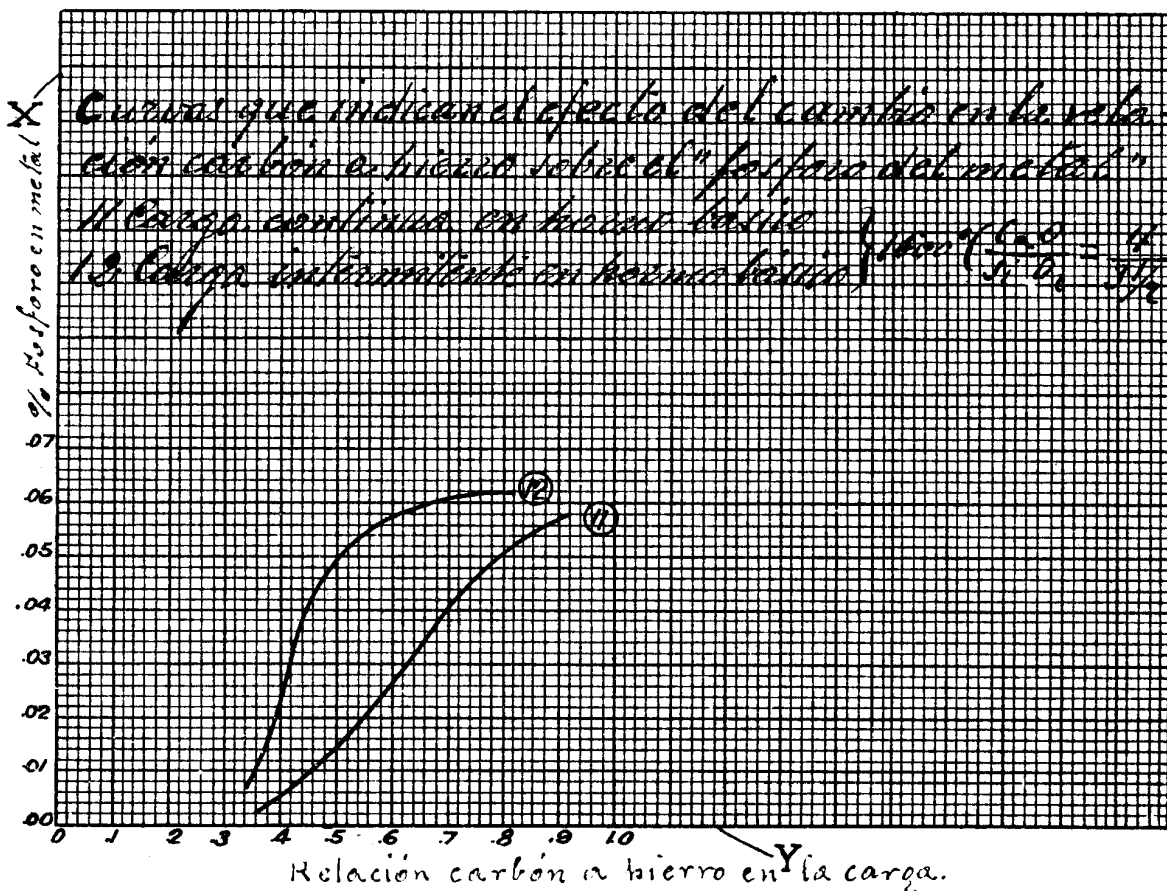 Curvas que indican el efecto del cambio en la rela
ción carbón a hierro sobre el "fosforo del metal"
11 Carga continua en horno básico
12 Carga intermitente en horno básico
X
% Fosforo en metal
.07
.06
.05
.04
.03
.02
.01
.00
12
11
0 .1 .2 .3 .4 .5 .6 .7 .8 .9 1.0
Y
Relación carbón a hierro en la carga.